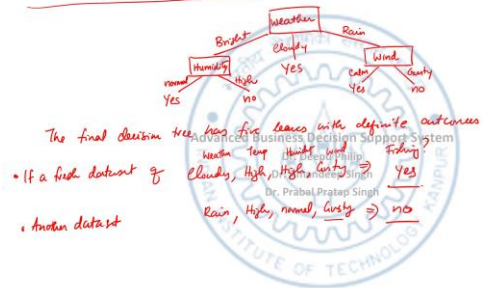 Weather
Bright Cloudy Rain
Humidity Yes Wind
normal High Calm Gusty
Yes no Yes no
The final decision tree has five leaves with definite outcomes
Advanced Business Decision Support System
Weather Temp Humidt wind Fishing?
Dr. Deepu Philip
• If a fresh dataset of Cloudy, High, High, Gusty ⇒ Yes
Dr. Amandeep Singh
Dr. Prabal Pratap Singh
• Another dataset Rain, High, normal, Gusty ⇒ no
INSTITUTE OF TECHNOLOGY KANPUR